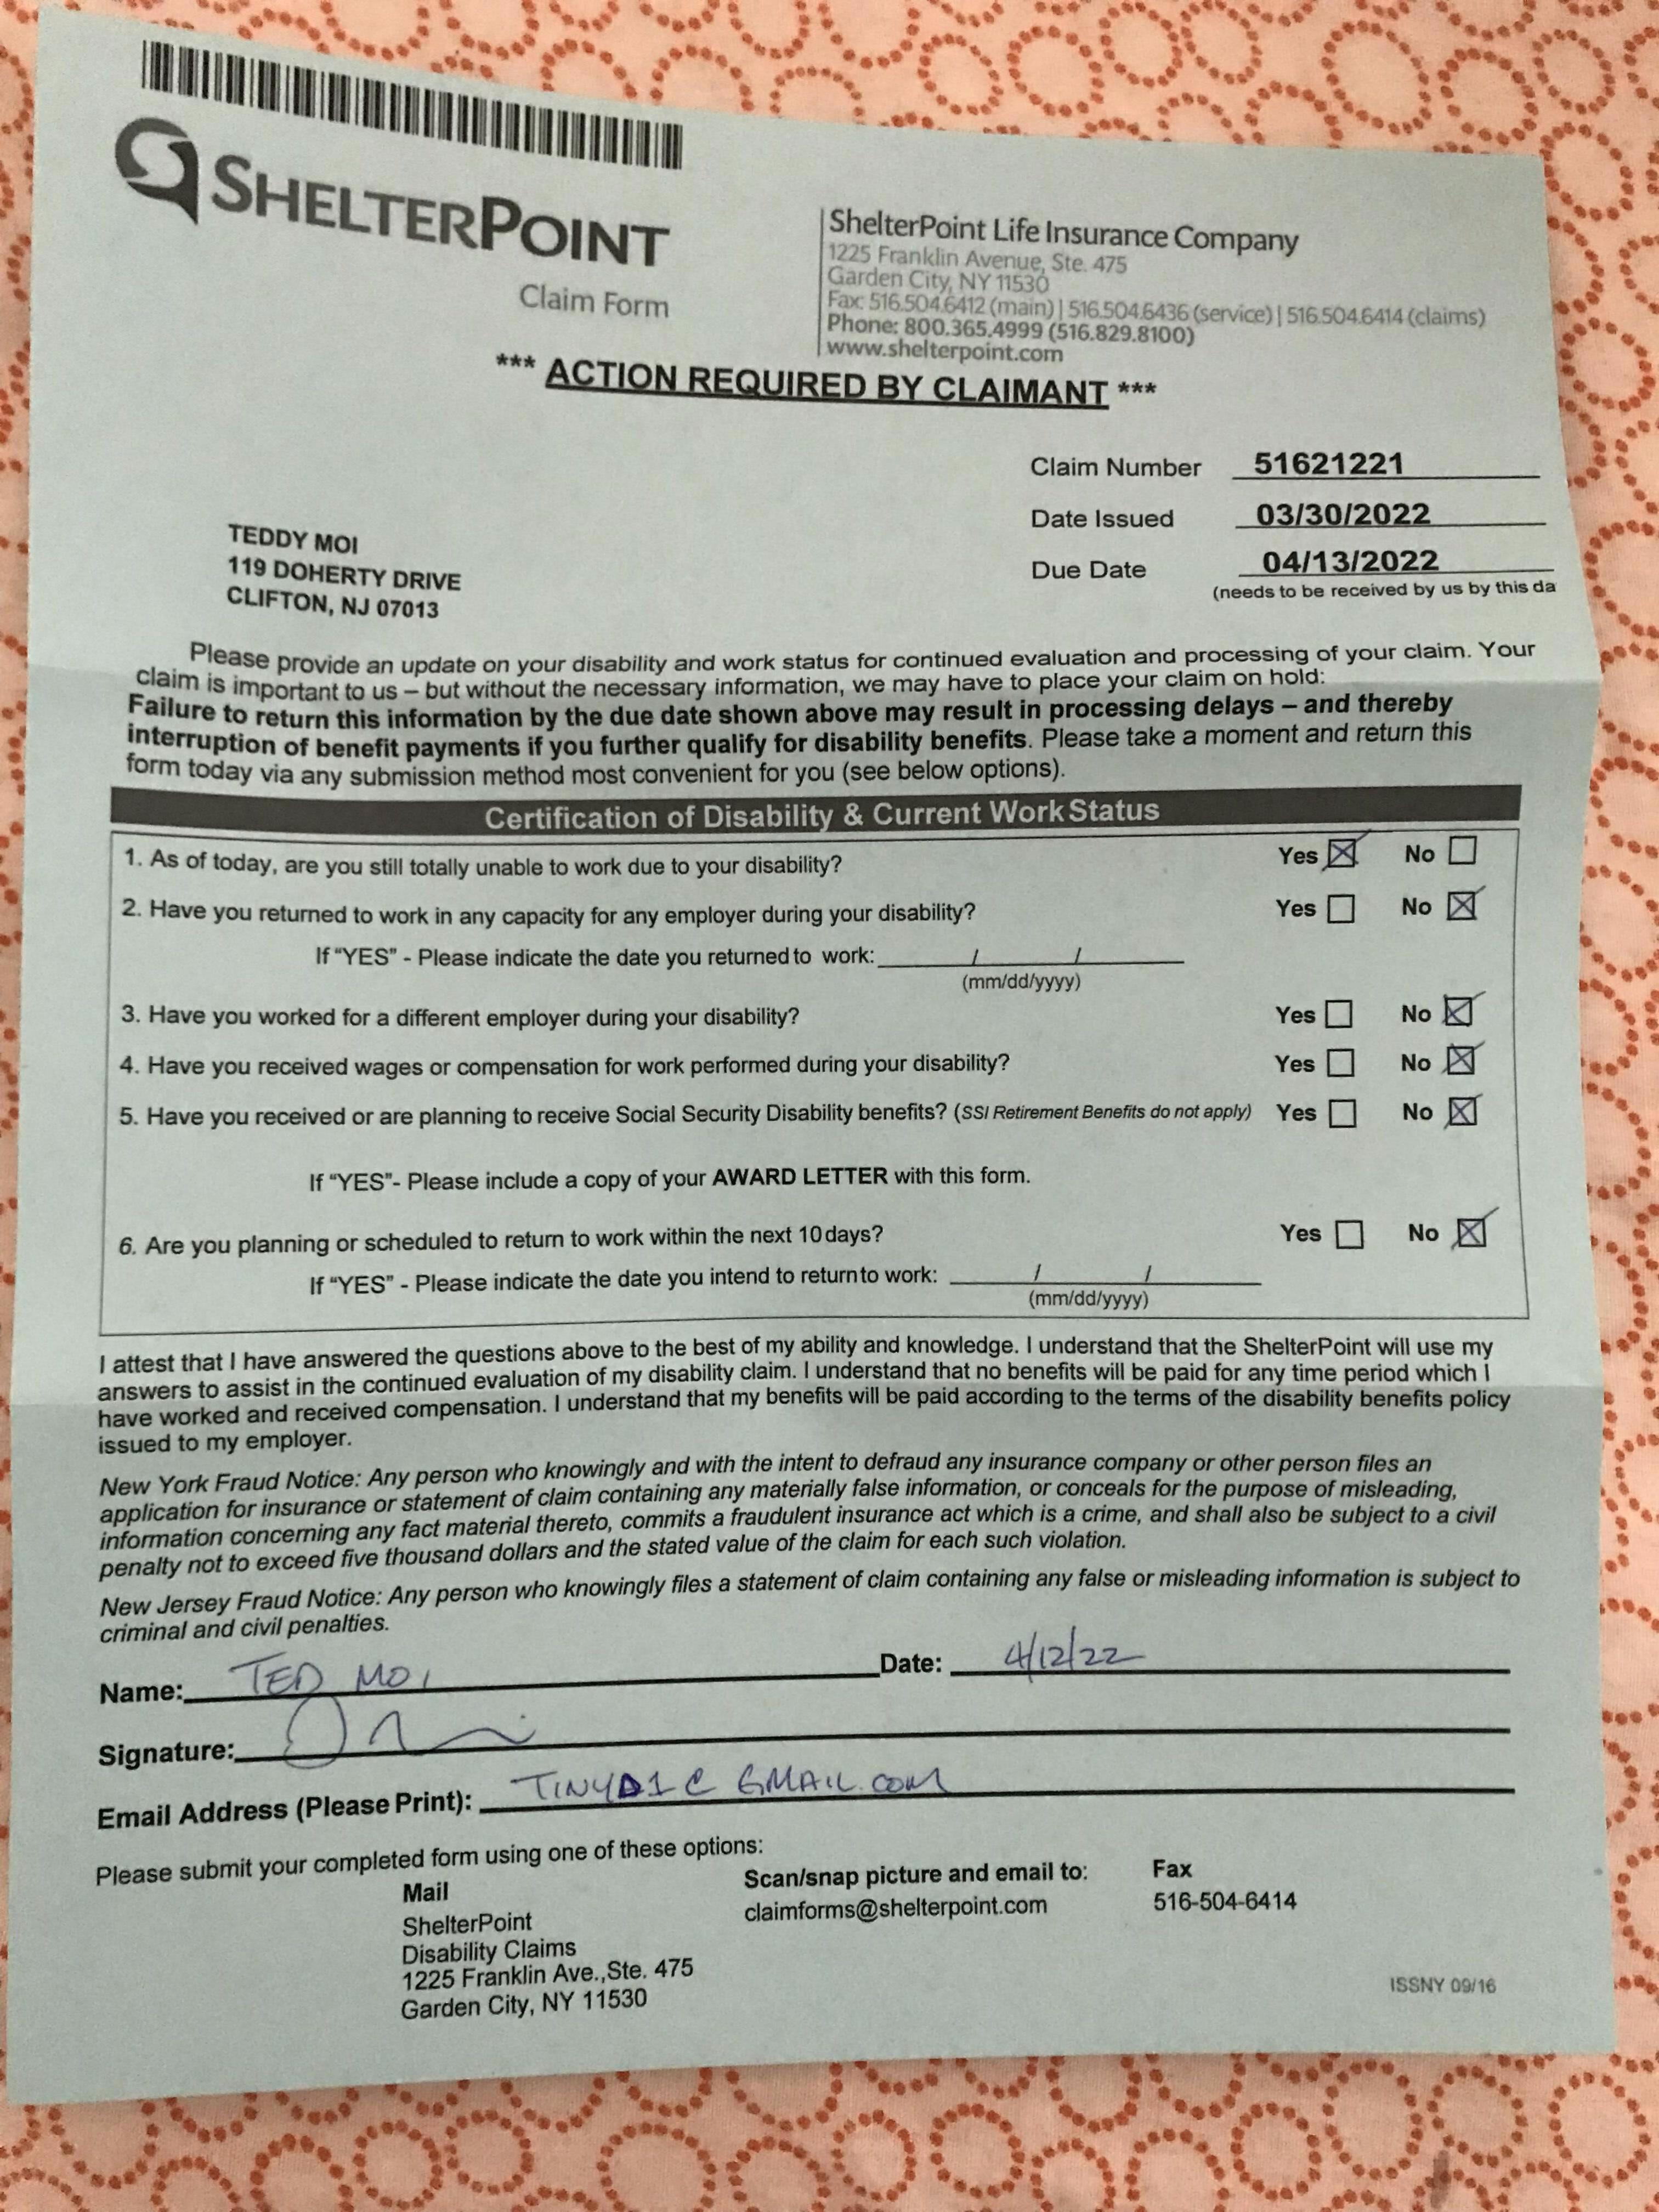 SHELTERPOINT
Claim Form
ShelterPoint Life Insurance Company
1225 Franklin Avenue, Ste. 475
Garden City, NY 11530
Fax: 516.504.6412 (main) | 516.504.6436 (service) | 516.504.6414 (claims)
Phone: 800.365.4999 (516.829.8100)
www.shelterpoint.com
*** ACTION REQUIRED BY CLAIMANT ***
Claim Number 51621221
Date Issued 03/30/2022
Due Date 04/13/2022
(needs to be received by us by this da
TEDDY MOI
119 DOHERTY DRIVE
CLIFTON, NJ 07013
Please provide an update on your disability and work status for continued evaluation and processing of your claim. Your
claim is important to us – but without the necessary information, we may have to place your claim on hold:
Failure to return this information by the due date shown above may result in processing delays – and thereby
interruption of benefit payments if you further qualify for disability benefits. Please take a moment and return this
form today via any submission method most convenient for you (see below options).
Certification of Disability & Current Work Status
1. As of today, are you still totally unable to work due to your disability? Yes ☒ No ☐
2. Have you returned to work in any capacity for any employer during your disability? Yes ☐ No ☒
If "YES" - Please indicate the date you returned to work: / /
(mm/dd/yyyy)
3. Have you worked for a different employer during your disability? Yes ☐ No ☒
4. Have you received wages or compensation for work performed during your disability? Yes ☐ No ☒
5. Have you received or are planning to receive Social Security Disability benefits? (SSI Retirement Benefits do not apply) Yes ☐ No ☒
If "YES"- Please include a copy of your AWARD LETTER with this form.
6. Are you planning or scheduled to return to work within the next 10 days? Yes ☐ No ☒
If "YES" - Please indicate the date you intend to return to work: / /
(mm/dd/yyyy)
I attest that I have answered the questions above to the best of my ability and knowledge. I understand that the ShelterPoint will use my
answers to assist in the continued evaluation of my disability claim. I understand that no benefits will be paid for any time period which I
have worked and received compensation. I understand that my benefits will be paid according to the terms of the disability benefits policy
issued to my employer.
New York Fraud Notice: Any person who knowingly and with the intent to defraud any insurance company or other person files an
application for insurance or statement of claim containing any materially false information, or conceals for the purpose of misleading,
information concerning any fact material thereto, commits a fraudulent insurance act which is a crime, and shall also be subject to a civil
penalty not to exceed five thousand dollars and the stated value of the claim for each such violation.
New Jersey Fraud Notice: Any person who knowingly files a statement of claim containing any false or misleading information is subject to
criminal and civil penalties.
Name: TED MOI Date: 4/12/22
Signature:
Email Address (Please Print): TINYD1@GMAIL.COM
Please submit your completed form using one of these options:
Mail
ShelterPoint
Disability Claims
1225 Franklin Ave.,Ste. 475
Garden City, NY 11530
Scan/snap picture and email to:
claimforms@shelterpoint.com
Fax
516-504-6414
ISSNY 09/16